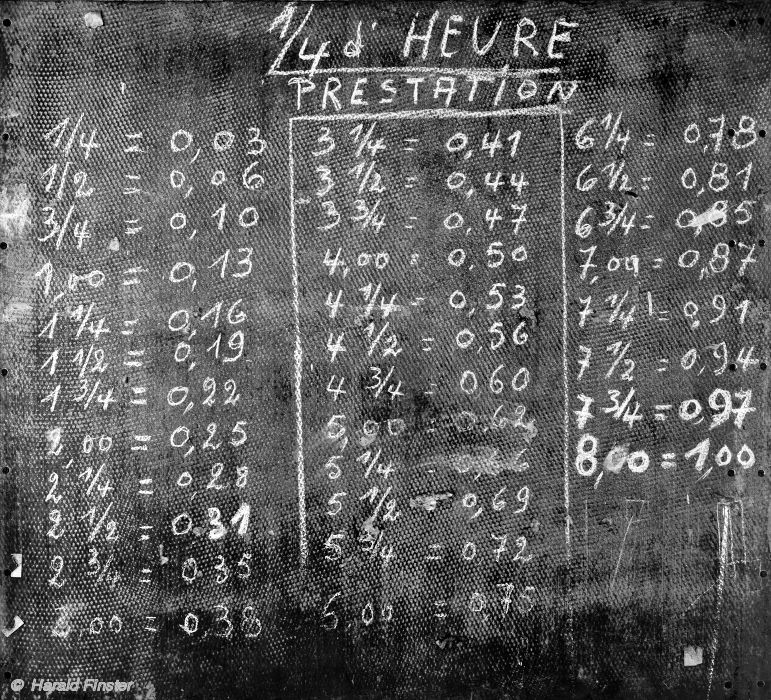 1/4 d' HEURE
PRESTATION
1/4 = 0,03
1/2 = 0,06
3/4 = 0,10
1,00 = 0,13
1 1/4 = 0,16
1 1/2 = 0,19
1 3/4 = 0,22
2,00 = 0,25
2 1/4 = 0,28
2 1/2 = 0.31
2 3/4 = 0,35
3,00 = 0,38
3 1/4 = 0,41
3 1/2 = 0,44
3 3/4 = 0,47
4,00 = 0,50
4 1/4 = 0,53
4 1/2 = 0,56
4 3/4 = 0,60
5,00 = 0,62
5 1/4 =
5 1/2 = 0,69
5 3/4 = 0,72
6,00 = 0,75
6 1/4 = 0,78
6 1/2 = 0,81
6 3/4 = 0,85
7,00 = 0,87
7 1/4 = 0,91
7 1/2 = 0,94
7 3/4 = 0,97
8,00 = 1,00
© Harald Finster